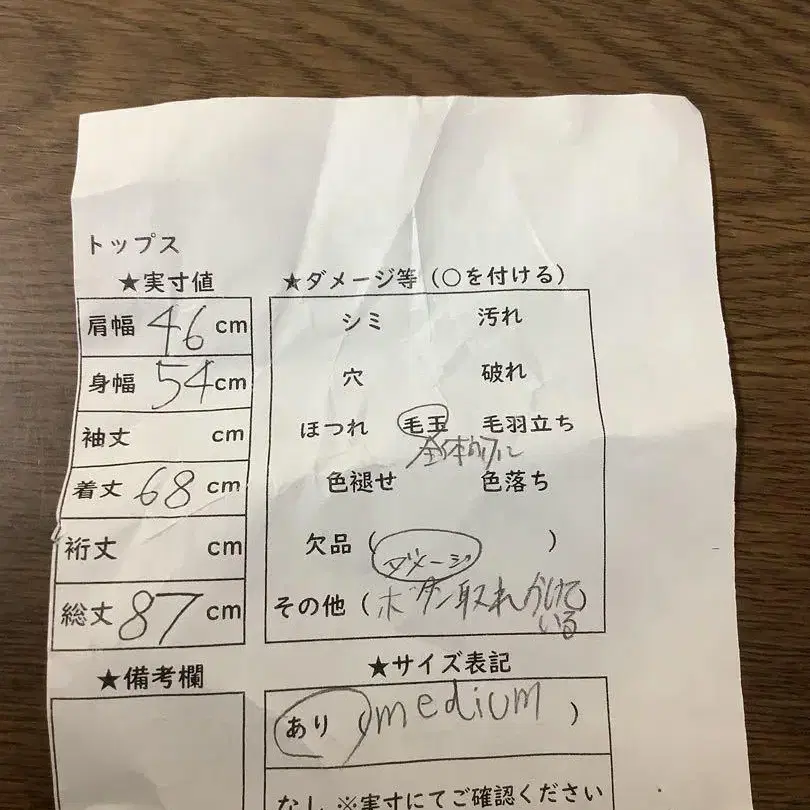 トップス
★実寸値
肩幅 46 cm
身幅 54 cm
袖丈 cm
着丈 68 cm
裄丈 cm
総丈 87 cm
★備考欄
★ダメージ等（○を付ける）
シミ 汚れ
穴 破れ
ほつれ 毛玉 毛羽立ち
全体的に
色褪せ 色落ち
欠品（ダメージ ）
その他（ボタン取れかけて
いる
★サイズ表記
あり（medium ）
なし ※実寸にてご確認ください